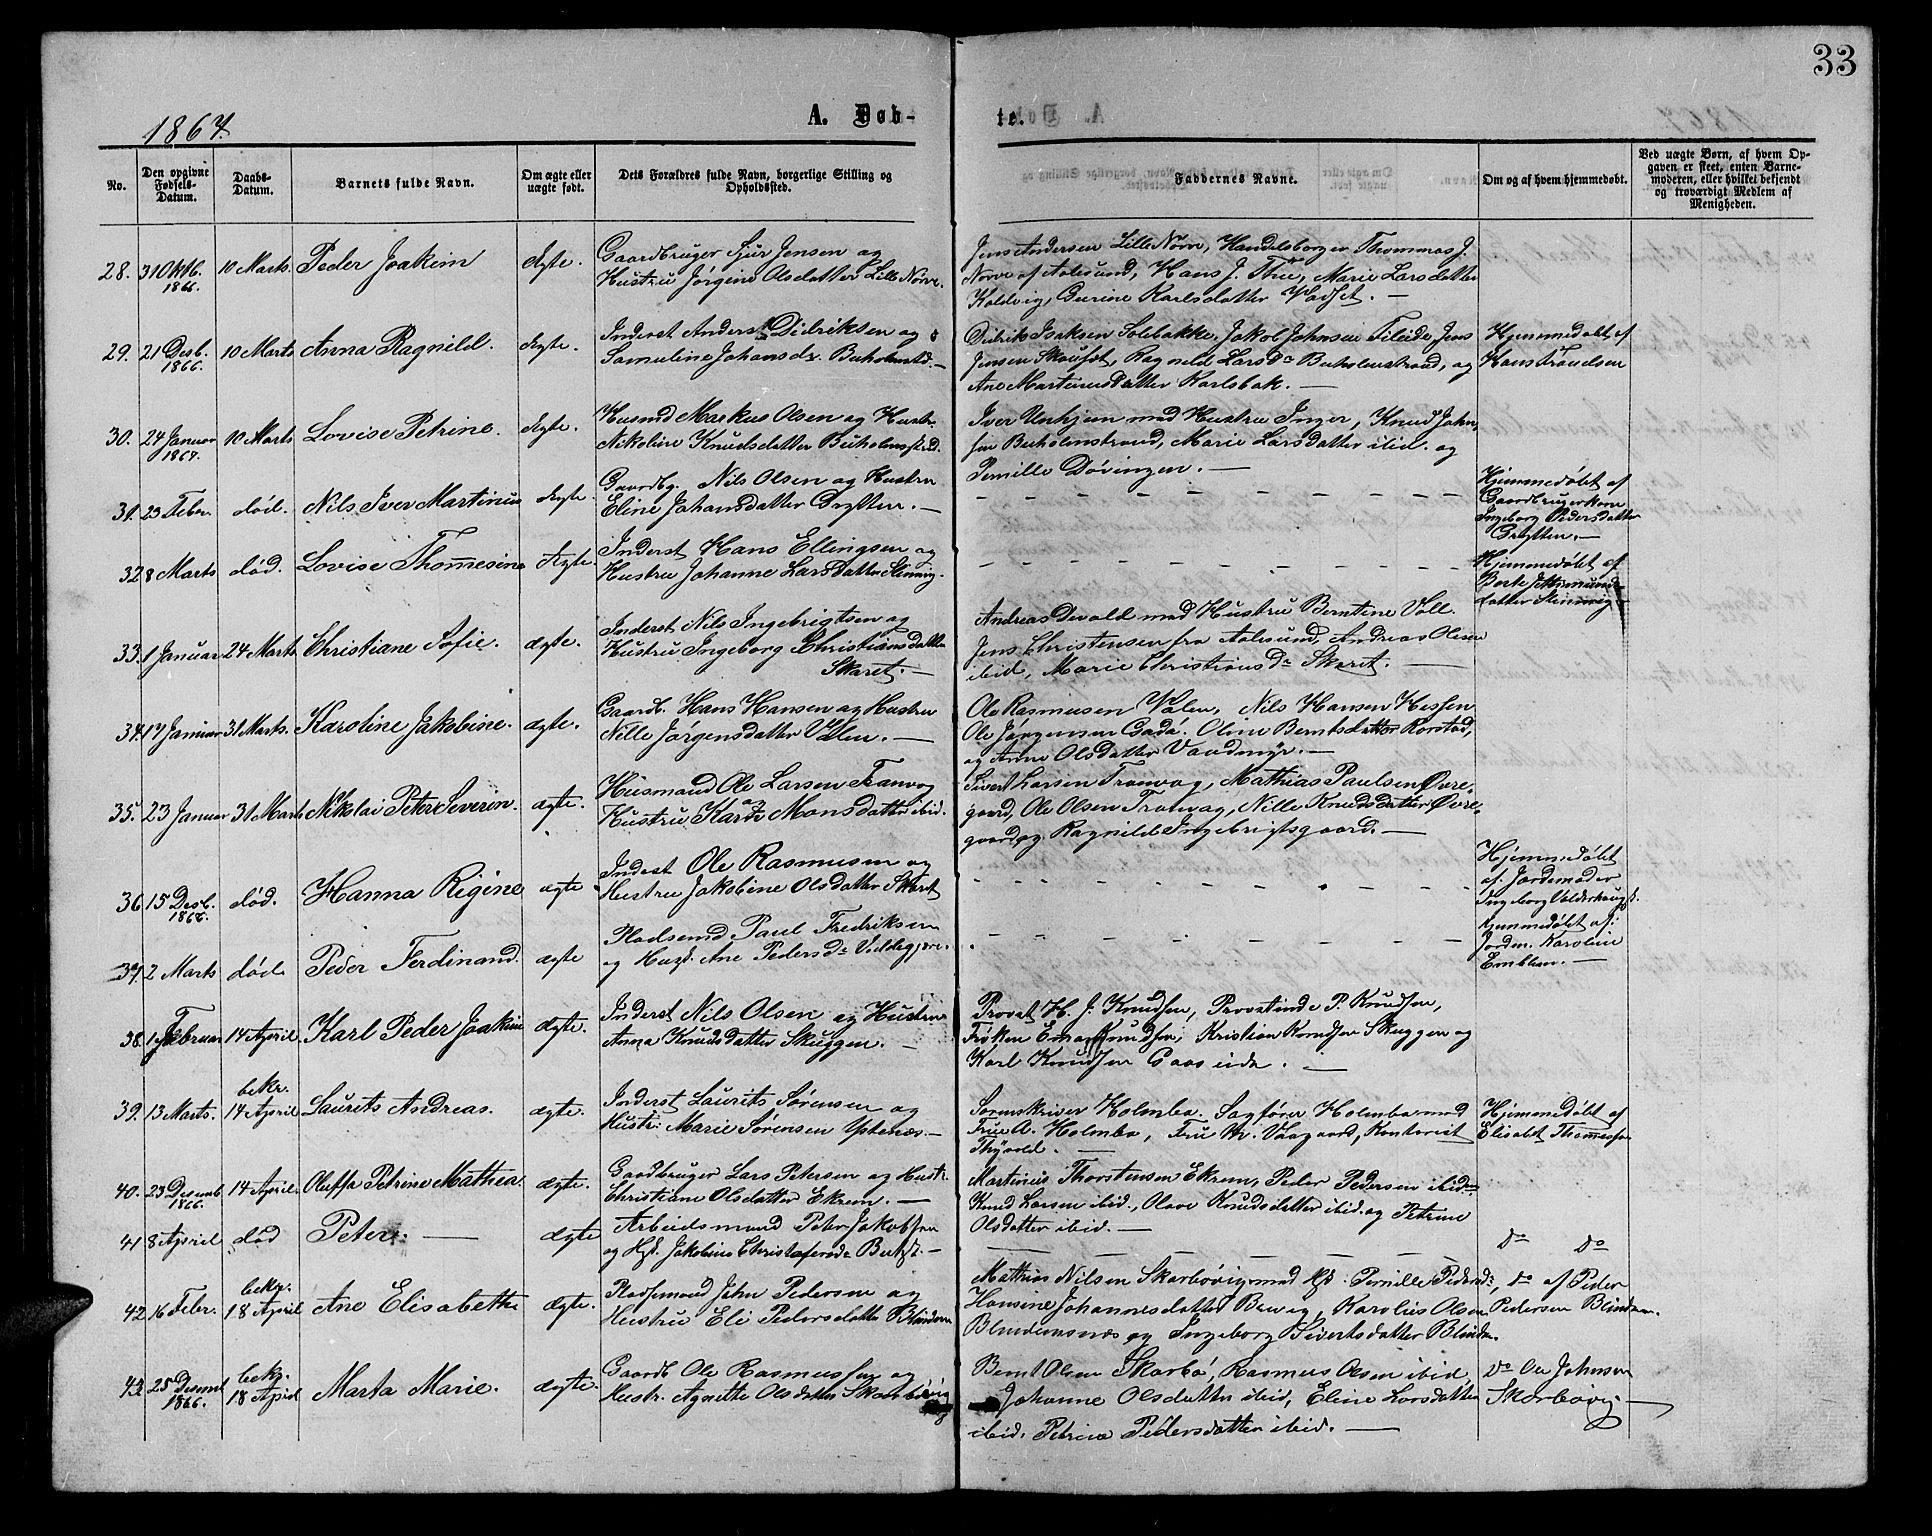 33
1867.
A. Døb-
te.
No.
Den opgivne Fødsels-Datum.
Daabs-Datum.
Barnets fulde Navn.
Om ægte eller uægte født.
Dets Forældres fulde Navn, borgerlige Stilling og Opholdssted.
Faddernes Navne.
Om og af hvem hjemmedøbt.
Ved uægte Børn, af hvem Opgaven er skeet, enten Barnemoderen, eller hvilket bekjendt og troværdigt Medlem af Menigheden.
28. 31 Oktb. 1866. 10 Marts. Peder Joakim Ægte.
Gaardbruger Sjur Jensen og
Hustru Jørgine Olsdatter Lille Nørve.
Jens Andersen Lille Nørve, Handelsborger Thommas J.
Nørve af Aalesund, Hans J. Thue, Marie Larsdatter
Kaldvig, Gurine Karlsdatter Vadset. —
29. 21 Desb. 1866. 10 Marts Anna Ragnild. Ægte.
Inderst Anders Didriksen og
Samuline Johansdr. Buholmstd. —
Didrik Isaksen Solbakke, Jakob Johnsen Fileide, Jens
Jensen Skouset, Ragnild Larsdr Buholmstrand, og
Ane Martinusdatter Karlsbak. —
Hjemmedøbt af
Hans Troudsen
30. 24 Januar 1867. 10 Marts Lovise Petrine. Ægte.
Husmd Markus Olsen og Hustr.
Nikoline Knudsdatter Buholmstrd.
Iver Uchjem med Hustru Inger, Knud John-
sen Buholmstrand, Marie Larsdatter ibid. og
Pernille Døvingen. —
31. 23 Febr. død. Nils Iver Martinus Ægte.
Gaardbg. Nils Olsen og Hustru
Eline Johansdatter Drytten. —
Hjemmedøbt af
Gaardbrugerkone
Ingeborg Pedersdatter
Drytten. —
32. 8 Marts død. Lovise Thomesine Ægte.
Inderst Hans Ellingsen og
Hustru Johanne Larsdatter Slinning.
Hjemmedøbt af
Berte
datter Slinning —
33. 1 Januar 24 Marts Christiane Sofie. ægte.
Inderst Nils Ingebrigtsen og
Hustru Ingeborg Christiansdatter
Skaret. —
Andreas Devold med Hustru Berntine Voll.
Jens Christensen fra Aalesund, Andreas Olsen
ibid, Marie Christiansdr Skaret. —
34. 17 Januar 31 Marts. Karoline Jakobine. ægte.
Gaardb. Hans Hansen og Hustru
Nille Jørgensdatter Valen. —
Ole Rasmusen Valen, Nils Hansen Hessen
Ole Jørgensen Gada. Oline Berntsdatter Rørstad,
og Anne Olsdatter Vandmyr. —
35. 23 Januar 31 Marts Nikolai Peter Severin. ægte.
Husmand Ole Larsen Tranvog
Hustru Karen Monsdatter ibid.
Sivert Larsen Tranvag, Mathias Paulsen Øvre-
gaard, Ole Olsen Tranvag, Nille Knudsdatter Øvre-
gaard og Ragnilde Ingebrigtsgaard. —
36. 15 Desb. 1866. død. Hanna Rigine ægte
Inderst Ole Rasmusen og
Hustru Jakobine Olsdatter Skaret
Hjemmedøbt
af Jordemoder
Ingeborg Valderhaug.
37. 2 Marts død. Peder Ferdinand. ægte
Pladsemd Paul Fredriksen
og Hust. Ane Pedersdr Veddegjære.
Hjemmedøbt af
Jordem. Karoline
Emblem. —
38. 1 Februar 14 April. Karl Peder Joakim ægte.
Inderst Nils Olsen og Hustru
Anna Knudsdatter Skuggen. —
Provst H. J. Knudsen, Provstinde P. Knudsen,
Frøken Ema Knudsen, Kristian Knudsen Skuggen og
Karl Knudsen Gaaseide. —
39. 13 Marts. bekr. 14 April Laurits Andreas. ægte.
Inderst Laurits Sørensen og
Hustr. Marie Sørensen Ystenæs. —
Sorenskriver Holmbo. Sagfører Holmboe med
Frue A. Holmbo, Fru W. Vaagaard, Kontorist
Thyvold. —
Hjemmedøbt af
Elisabt Thomassen
40. 23 Desemb 1866. 14 April. Oluffa Petrine Mathea. ægte.
Gaardbruger Lars Petersen og Hustr.
Christiane Olsdatter Ekrem. —
Martinus Thorstensen Ekrem, Peder Pedersen ibidem,
Knud Larsen ibid., Olave Knudsdatter ibid. og Petrine
Olsdatter ibid. —
41. 8 April død Peter. — ægte
Arbeidsmand Peter Jakobsen
og Hst. Jakobine Christofersdr
do do
42. 16 Febr. bekr. 18 April Ane Elisabethe ægte.
Pladsemand John Pedersen og
Hustru Eli Pedersdatter Blindem
Mathias Nilsen Skarbøvig med Hst. Pernille Pedersdr,
Hansine Johannesdatter Brevig, Karolius Olsen
Blindemsnæs og Ingeborg Sivertsdatter Blindm.
do af Peder
Pedersen Blindem.
43. 25 Desemb 1866. bekr. 18 April Marta Marie. ægte.
Gaardb Ole Rasmussen og
Hustr. Agnette Olsdatter Skarbøvig
Bernt Olsen Skarbø, Rasmus Olsen ibid,
Johanne Olsdatter ibid, Eline Larsdatter
ibid, Petrine Pedersdatter ibid. —
do Ole Johnsen
Skarbøvig —